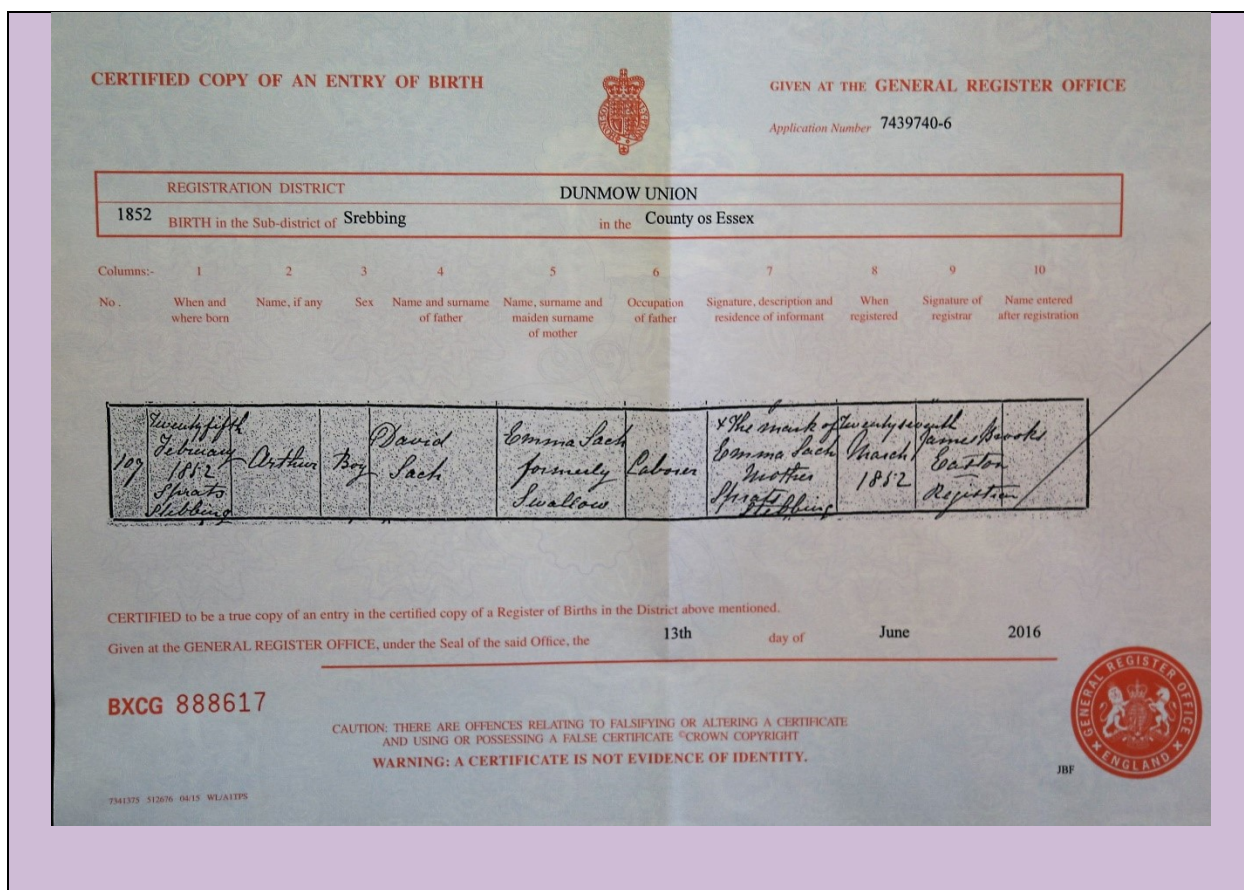 CERTIFIED COPY OF AN ENTRY OF BIRTH
GIVEN AT THE GENERAL REGISTER OFFICE
Application Number 7439740-6
REGISTRATION DISTRICT DUNMOW UNION
1852 BIRTH in the Sub-district of Srebbing in the County os Essex
Columns:- 1 2 3 4 5 6 7 8 9 10
No. When and where born Name, if any Sex Name and surname of father Name, surname and maiden surname of mother Occupation of father Signature, description and residence of informant When registered Signature of registrar Name entered after registration
107
Twenty fifth
February
1852
Sprats
Stebbing
Arthur
Boy
David
Sach
Emma Sach
formerly
Swallow
Laborer
x The mark of
Emma Sach
Mother
Sprats
Stebbing
Twenty seventh
March
1852
James Brooks
Easton
Registrar
CERTIFIED to be a true copy of an entry in the certified copy of a Register of Births in the District above mentioned.
Given at the GENERAL REGISTER OFFICE, under the Seal of the said Office, the 13th day of June 2016
BXCG 888617
CAUTION: THERE ARE OFFENCES RELATING TO FALSIFYING OR ALTERING A CERTIFICATE
AND USING OR POSSESSING A FALSE CERTIFICATE ©CROWN COPYRIGHT
WARNING: A CERTIFICATE IS NOT EVIDENCE OF IDENTITY.
GENERAL REGISTER OFFICE
ENGLAND
JBF
7341375 512676 04/15 WL/A1TPS